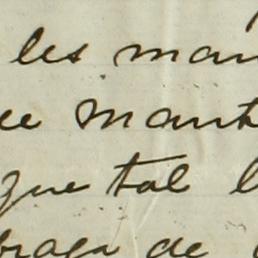 les man
ue mant
que tal l
braga de